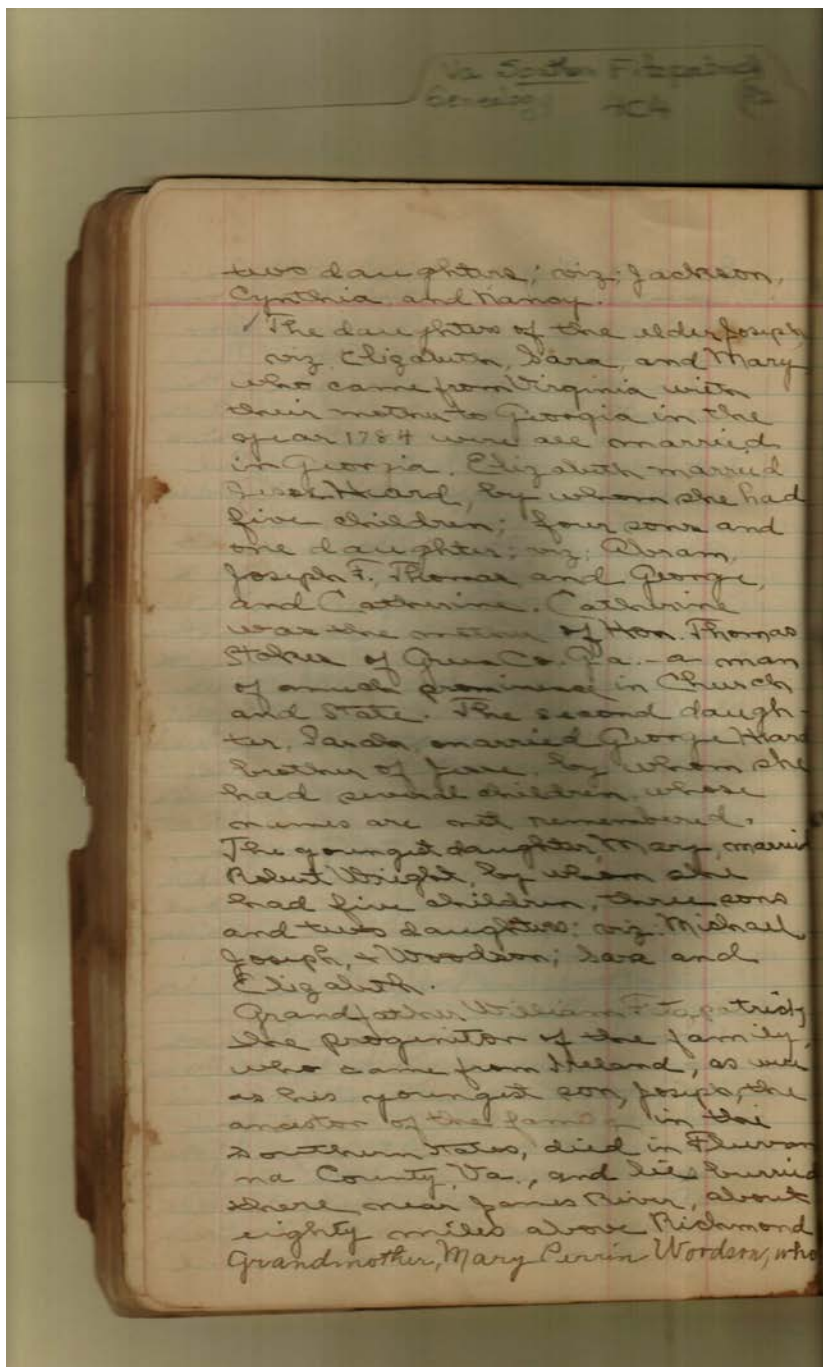 Va Southern Fitzpatrick
Genealogy
two daughters; viz; Jackson,
Cynthia and Nancy.
The daughters of the elder Joseph,
viz. Elizabeth, Sara, and Mary
who came from Virginia with
their mother to Georgia in the
year 1784 were all married
in Georgia. Elizabeth married
Jesse Heard, by whom she had
five children; four sons and
one daughter; viz; Abram,
Joseph F., Thomas and George,
and Catherine. Catherine
was the mother of Hon. Thomas
Stokes of Green Co. Ga. - a man
of much prominence in Church
and State. The second daugh-
ter, Sarah, married George Heard
brother of Jesse, by whom she
had several children, whose
names are not remembered.
The youngest daughter, Mary, married
Robert Wright, by whom she
had five children, three sons
and two daughters; viz: Michael
Joseph, + Woodson; Sara and
Elizabeth.
Grandfather William Fitzpatrick,
the progenitor of the family,
who came from Ireland, as well
as his youngest son, Joseph, the
ancestor of the family in the
Southern States, died in Fluvan
na County, Va., and lies burried
there near James River, about
eighty miles above Richmond
Grandmother, Mary Perrin Woodson, who